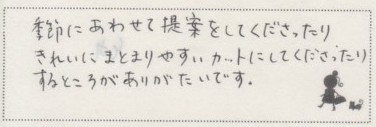 季節にあわせて提案をしてくださったり
きれいにまとまりやすいカットにしてくださったり
するところがありがたいです。